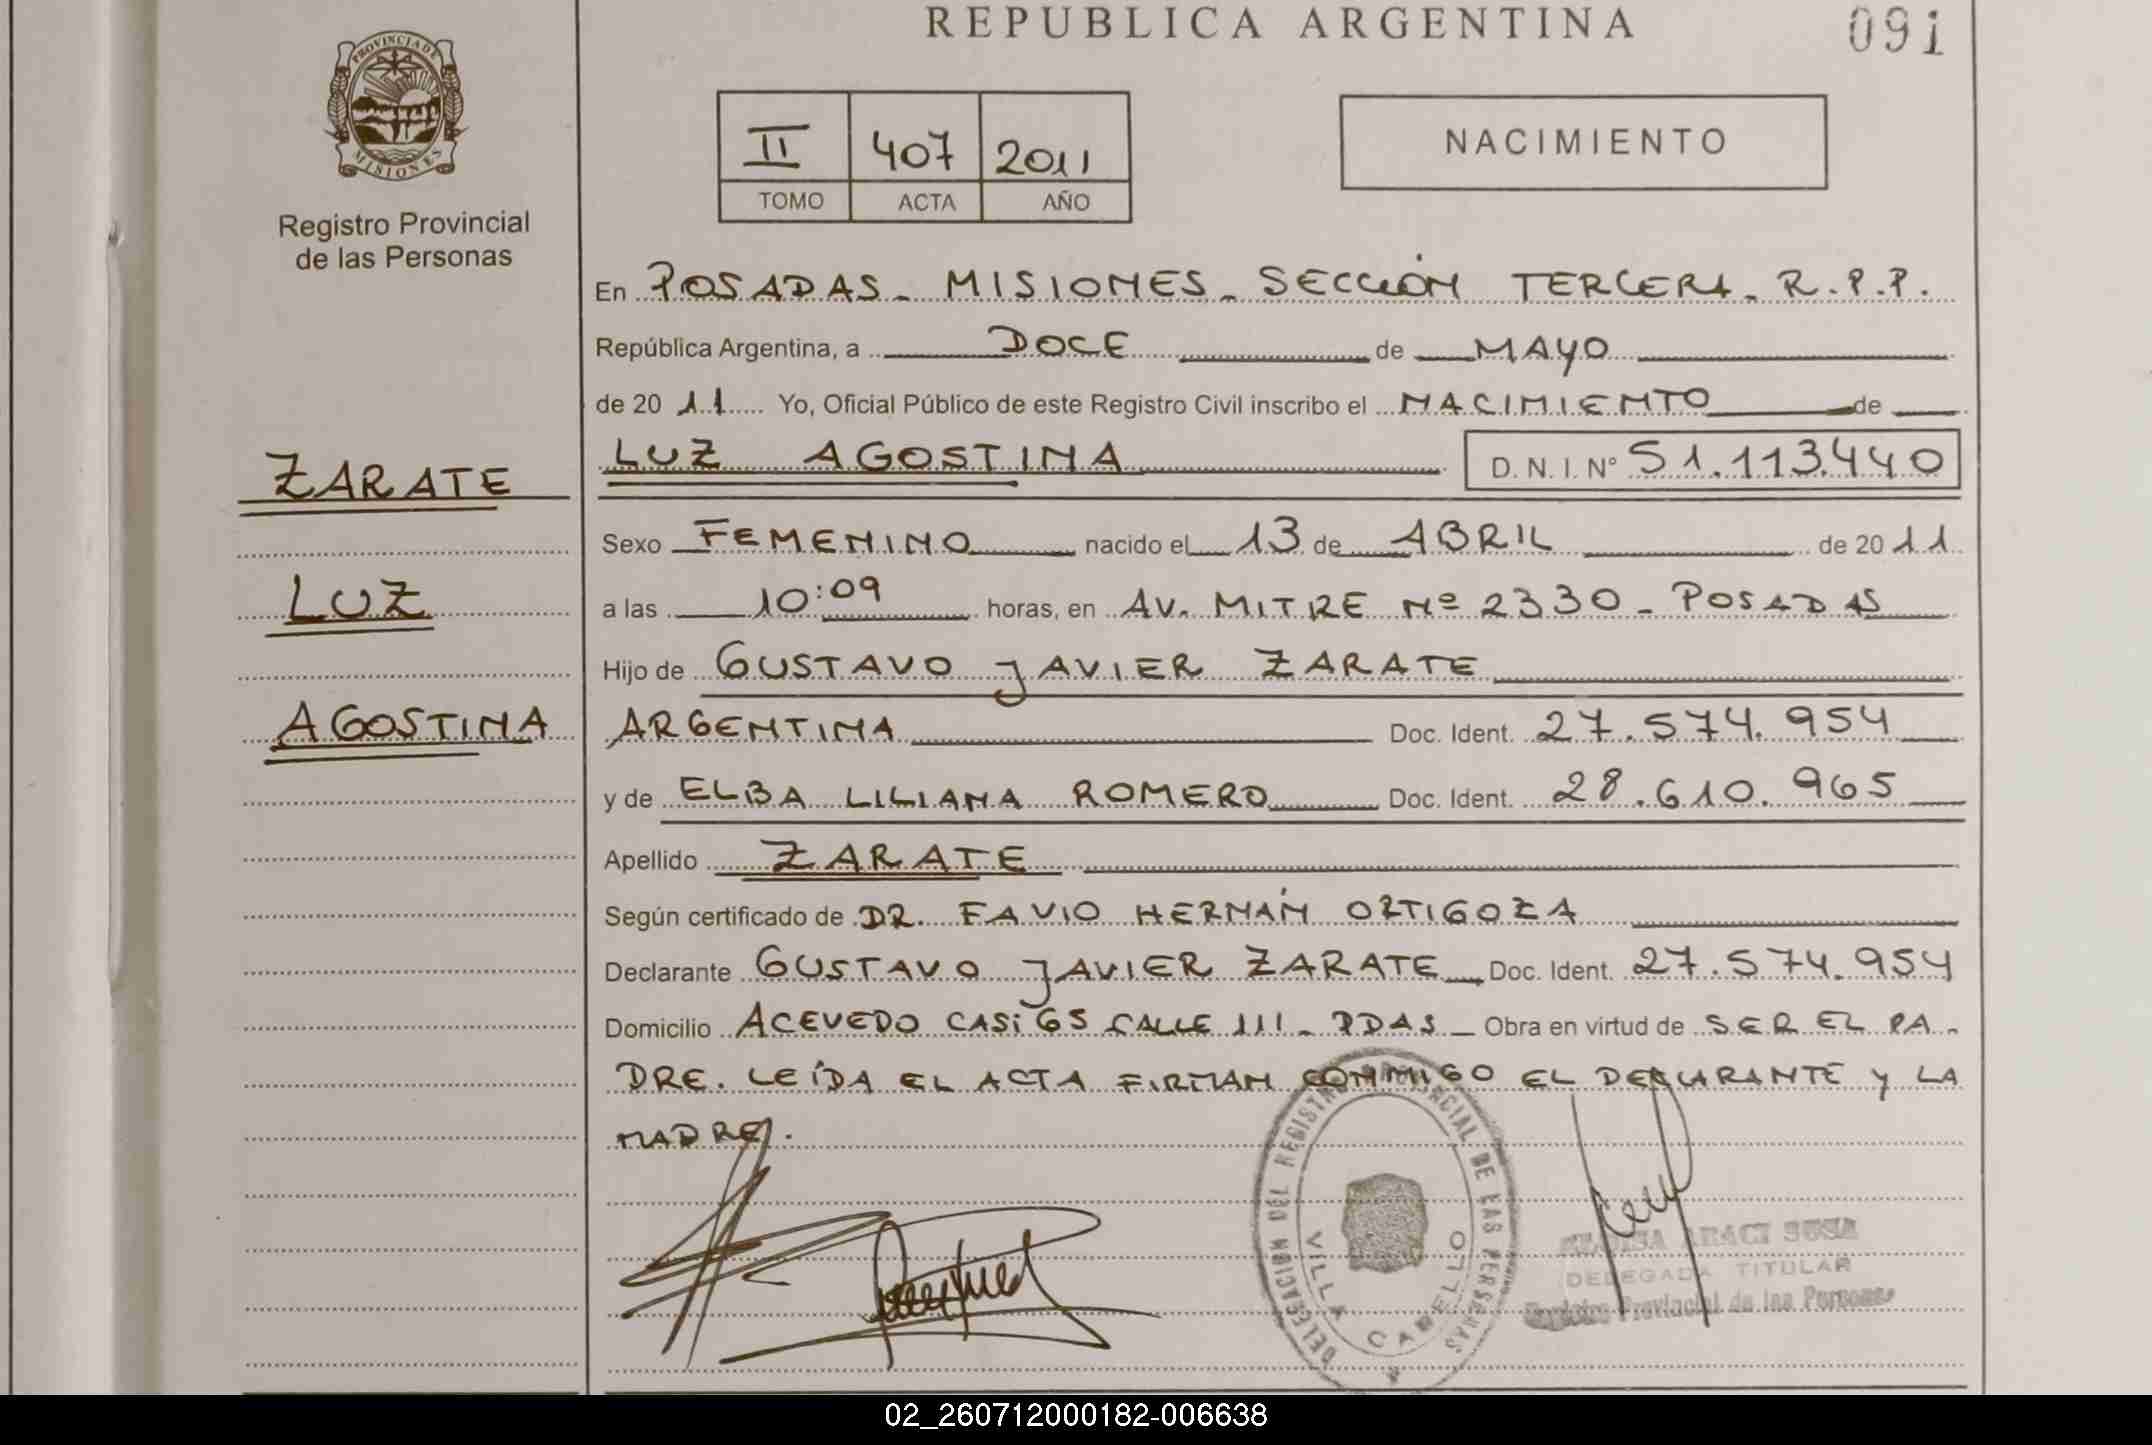 REPUBLICA ARGENTINA
091
PROVINCIA DE
MISIONES
Registro Provincial
de las Personas
II 407 2011
TOMO ACTA AÑO
NACIMIENTO
ZARATE
LUZ
AGOSTINA
En POSADAS - MISIONES - SECCIÓN TERCERA - R.P.P.
República Argentina, a DOCE de MAYO
de 2011 Yo, Oficial Público de este Registro Civil inscribo el NACIMIENTO de
LUZ AGOSTINA D.N.I. N° 51.113.440
Sexo FEMENINO nacido el 13 de ABRIL de 2011
a las 10:09 horas, en AV. MITRE Nº 2330 - POSADAS
Hijo de GUSTAVO JAVIER ZARATE
ARGENTINA Doc. Ident. 27.574.954
y de ELBA LILIANA ROMERO Doc. Ident. 28.610.965
Apellido ZARATE
Según certificado de DR. FAVIO HERNÁN ORTIGOZA
Declarante GUSTAVO JAVIER ZARATE Doc. Ident. 27.574.954
Domicilio ACEVEDO CASi 65 CALLE 111 - PDAS - Obra en virtud de SER EL PA-
DRE. LEÍDA EL ACTA FIRMAN CONMIGO EL DECLARANTE Y LA
MADRE.
DELEGACION DEL REGISTRO PROVINCIAL DE LAS PERSONAS
VILLA CABELLO
ARACI SOSA
DELEGADA TITULAR
Registro Provincial de las Personas
02_260712000182-006638